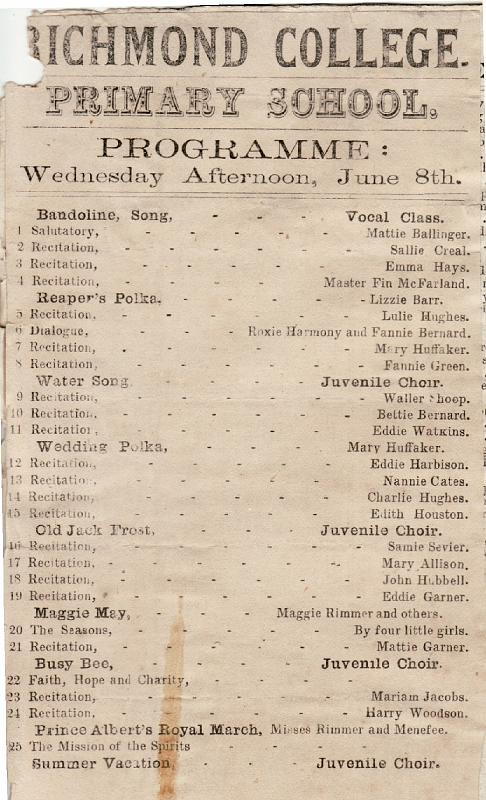 RICHMOND COLLEGE.
PRIMARY SCHOOL.
PROGRAMME:
Wednesday Afternoon, June 8th.
Bandoline, Song, - - - Vocal Class.
1 Salutatory, - - - - - Mattie Ballinger.
2 Recitation, - - - - - Sallie Creal.
3 Recitation, - - - - - Emma Hays.
4 Recitation, - - - - Master Fin McFarland.
Reaper's Polka, - - - - - Lizzie Barr.
5 Recitation, - - - - - Lulie Hughes.
6 Dialogue, - - - Roxie Harmony and Fannie Bernard.
7 Recitation, - - - - - Mary Huffaker.
8 Recitation, - - - - - Fannie Green.
Water Song - - - - Juvenile Choir.
9 Recitation, - - - - - Waller Shoop.
10 Recitation, - - - - - Bettie Bernard.
11 Recitation, - - - - - Eddie Watkins.
Wedding Polka, - - - - Mary Huffaker.
12 Recitation, - - - - - Eddie Harbison.
13 Recitation, - - - - - Nannie Cates.
14 Recitation, - - - - - Charlie Hughes.
15 Recitation, - - - - - Edith Houston.
Old Jack Frost, - - - - Juvenile Choir.
16 Recitation, - - - - - Samie Sevier.
17 Recitation, - - - - - Mary Allison.
18 Recitation, - - - - - John Hubbell.
19 Recitation, - - - - - Eddie Garner.
Maggie May, - - - Maggie Rimmer and others.
20 The Seasons, - - - - By four little girls.
21 Recitation, - - - - - Mattie Garner.
Busy Bee, - - - - Juvenile Choir.
22 Faith, Hope and Charity, - - - -
23 Recitation, - - - - - Mariam Jacobs.
24 Recitation, - - - - - Harry Woodson.
Prince Albert's Royal March, Misses Rimmer and Menefee.
25 The Mission of the Spirits - - - -
Summer Vacation, - - - Juvenile Choir.